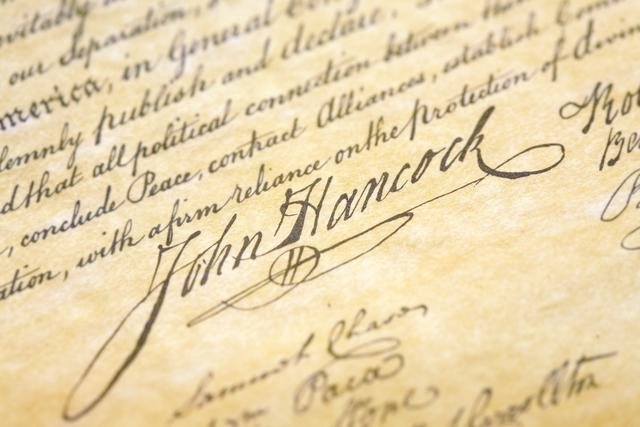 our separation,
merica, in General Cong
lemnly publish and declare,
d that all political connection between
, conclude Peace, contract Alliances, establish Com
ation, with a firm reliance on the protection of divin
John Hancock
Samuel Chase
Paca